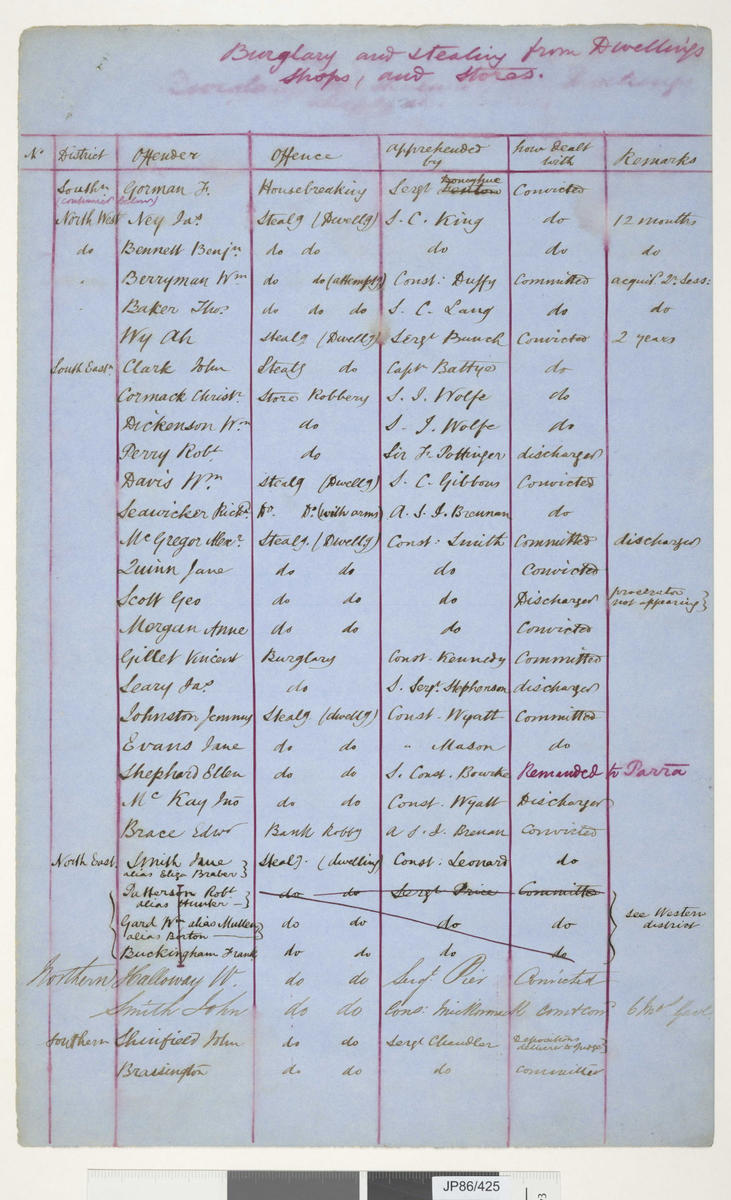 Burglary and stealing from Dwellings
Shops, and Stores.
No District Offender Offence apprehended by how dealt with Remarks
Southn Gorman F. Housebreaking Sergt Fenton Donoghue Convicted
(continued below)
North West Ney Jas Stealg (Dwellg) S. C. King do 12 months
do Bennett Benjn do do do do do
" Berryman Wm do do (attempt) Const: Duffy Committed acquit. Qr. Sess:
Baker Thos do do do S. C. Lang do do
Wy Ah Stealg (Dwellg) Sergt Bunch Convicted 2 years
South Eastn Clark John Stealg do Captn Battye do
Cormack Christr Store Robbery S. I. Wolfe do
Dickenson Wm do S. I. Wolfe do
Perry Robt do Sir F. Pottinger discharged
Davis Wm Stealg (Dwellg) S. C. Gibbons Convicted
Seawicker Richd Do. Do (with arms) A. S. I. Brennan do
McGregor Alexr. Stealg. (Dwellg) Const: Smith Committed discharged
Quinn Jane do do do Convicted
Scott Geo do do do Discharged prosecutor not appearing}
Morgan Anne do do do Convicted
Gillet Vincent Burglary Const. Kennedy Committed
Leary Jas do S. Sergt. Stephenson discharged
Johnston Jemmy Stealg (dwellg) Const. Wyatt Committed
Evans Jane do do " Mason do
Shephard Ellen do do S. Const. Bourke Remanded to Parra
McKay Jno do do Const. Wyatt Discharged
Brace Edwd Bank Robby A S. I. Brenan Convicted
North East. Smith Jane Stealg. (dwelling) Const: Leonard do
alias Eliza Braber}
Patterson Robt do do Sergt Price Committed
alias Hunter -}
Gard Wm alias Mullen do do do do see Western district
alias Borton }
Buckingham Frank do do do do
Northern Halloway W. do do Sergt. Pier Convicted
Smith John do do Cons: com & con 6 Mos Gaol
Southern Shinfield John do do Sergt Chandler Depositions delivered to Judge}
Brassington do do do committed
JP86/425